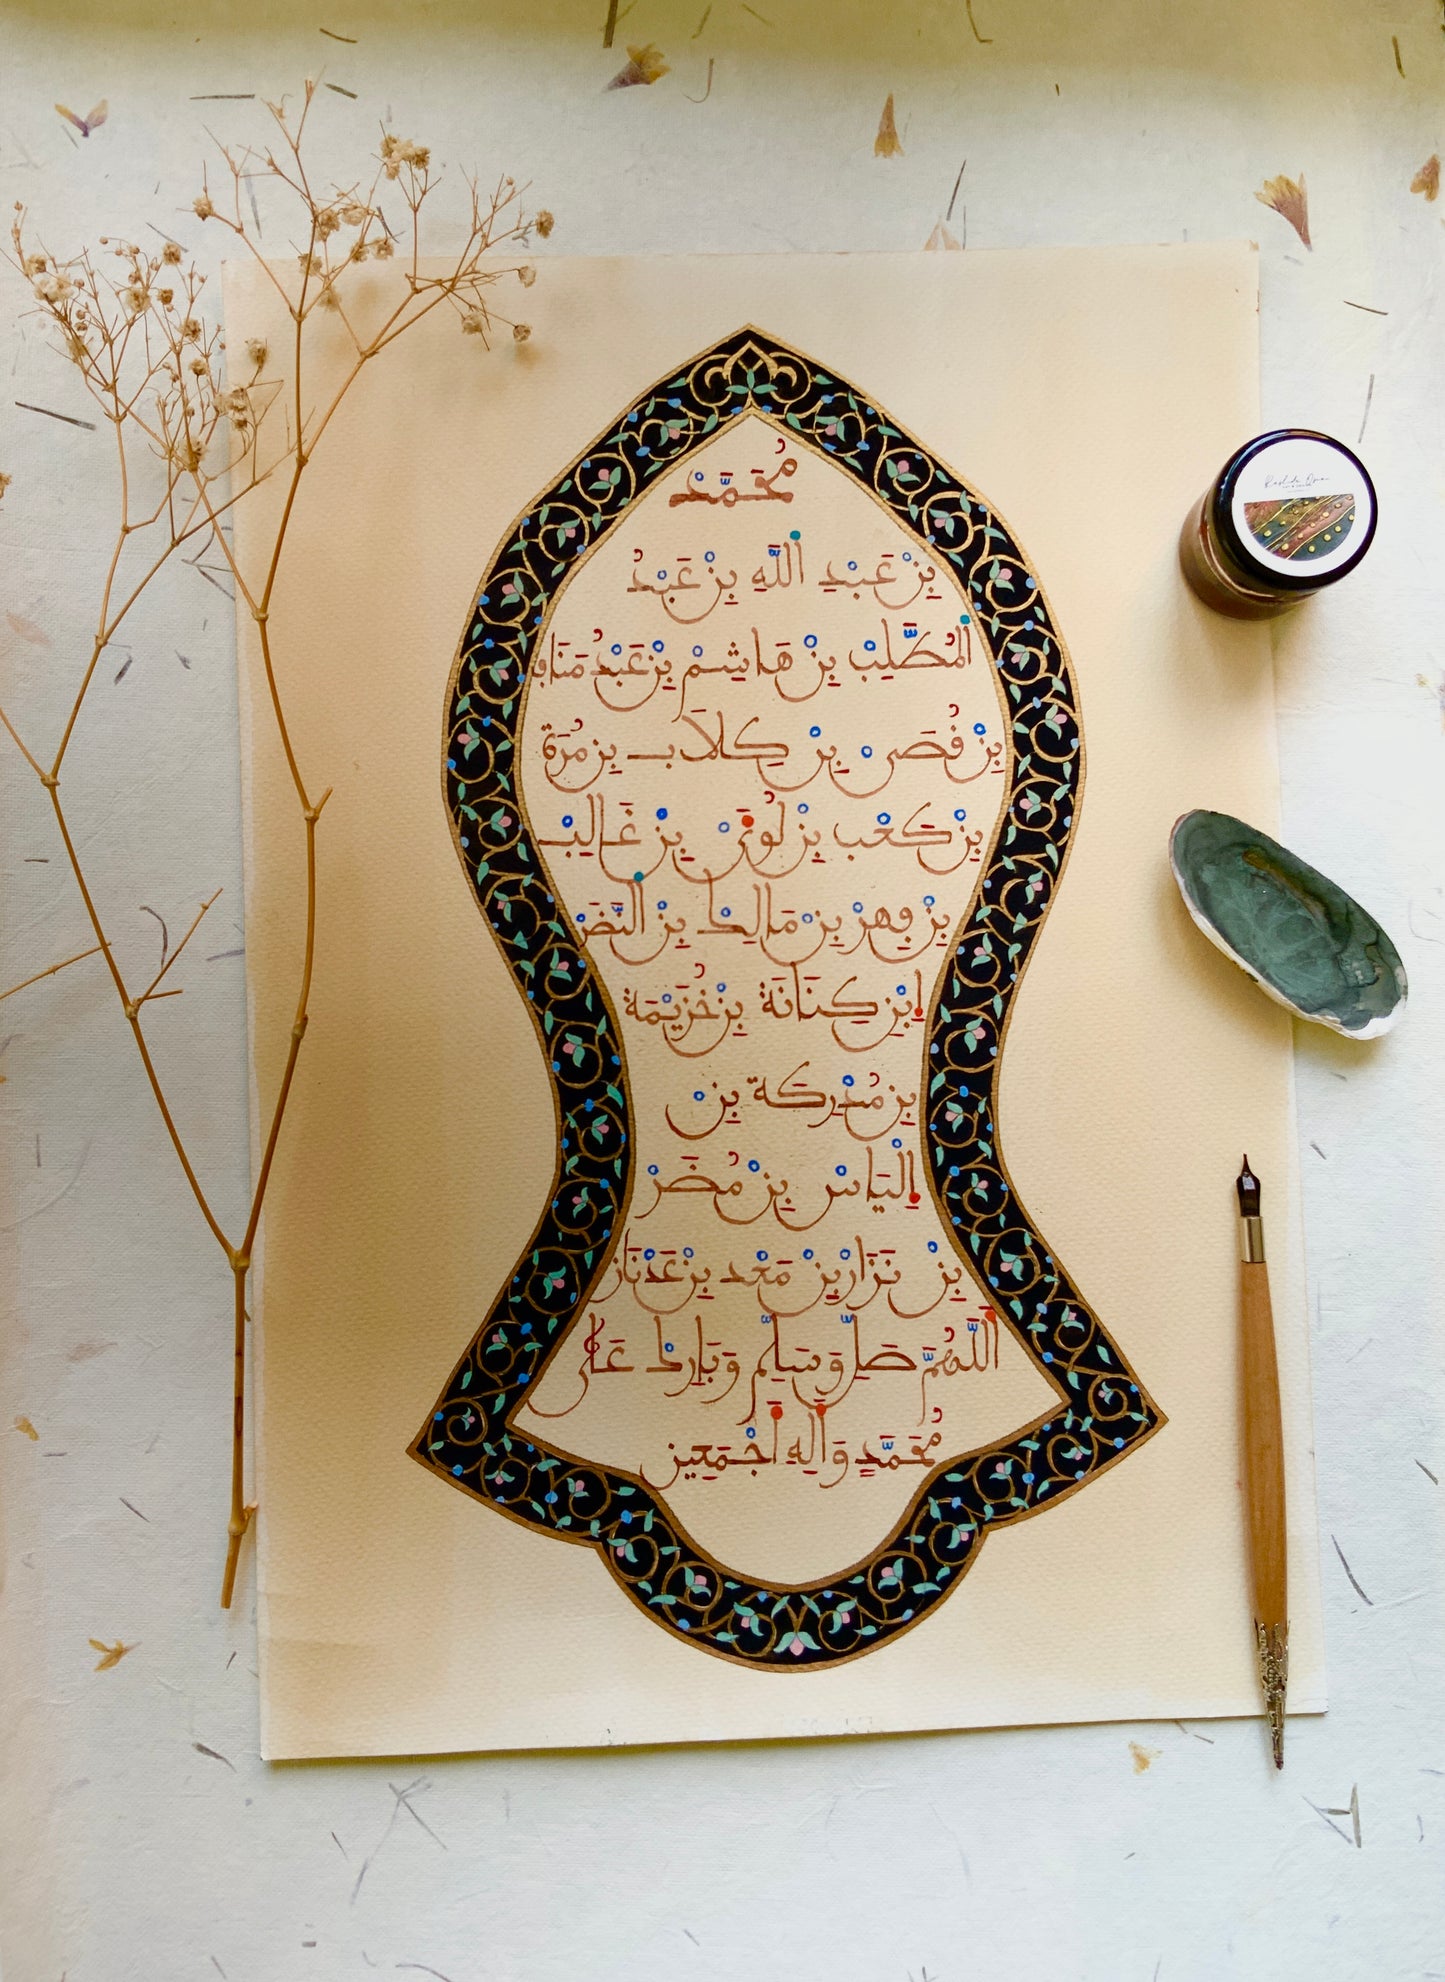 مُحَمَّدْ
بِنْ عَبْدِ اَللَّهِ بِنْ عَبْدُ
اَلْمُطَّلِبْ بِنْ هَاشِمْ بِنْ عَبْدُ مَنَافِ
بِنْ قُصَيْ بِنْ كِلاَب بِن مُرَةَ
بِنْ كَعْب بِنْ لُؤَيْ بِنْ غَالِبْ
بِنْ فِهِرْ بِنْ مَالِك بِنْ اَلنَّضَرْ
اِبْنِ كِنَانَةَ بِنْ خُزَيْمَةَ
بِن مُدْرِكَة بِنْ
اِلْيَاسْ بِنْ مُضَرْ
بِنْ نَزَارْ بِنْ مَعْد بِنْ عَدْنَان
اَللَّهُمَّ صَلِّ وَسَلِّمْ وَبَارِك عَلَى
مُحَمَّدٍ وَأَلِهِ أَجْمَعِين